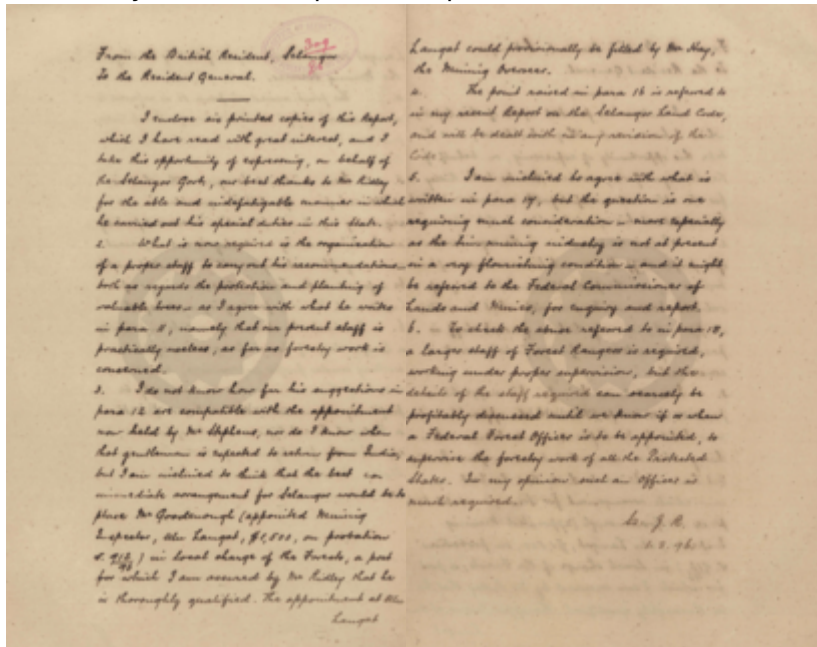 From the British Resident, Selangor
To the Resident General.
I enclose six printed copies of this Report,
which I have read with great interest, and I
take this opportunity of expressing, on behalf of
the Selangor Govt, our best thanks to Mr Ridley
for the able and indefatigable manner in which
he carried out his special duties in this State.
2. What is now required is the organization
of a proper staff to carry out his recommendations
both as regards the protection and planting of
valuable trees - as I agree with what he writes
in para 11, namely that our present staff is
practically useless, as far as forestry work is
concerned.
3. I do not know how far his suggestions in
para 12 are compatible with the appointment
now held by Mr Stephens, nor do I know when
that gentleman is expected to return from India,
but I am inclined to think that the best
immediate arrangement for Selangor would be to
place Mr Goodenough (appointed Mining
Inspector, Ulu Langat, $1,500, on probation
) in local charge of the Forests, a post
for which I am assured by Mr Ridley that he
is thoroughly qualified. The appointment at Ulu
Langat
Langat could provisionally be filled by Mr Hay,
the Mining Overseer.
4. The point raised in para 16 is referred to
in my recent Report on the Selangor Land Code,
and will be dealt with in any revision of the
Code.
5. I am inclined to agree with what is
written in para 17, but the question is one
requiring much consideration - more especially
as the tin mining industry is not at present
in a very flourishing condition - and it might
be referred to the Federal Commissioner of
Lands and Mines, for enquiry and report.
6. - To check the abuse referred to in para 18,
a larger staff of Forest Rangers is required,
working under proper supervision, but the
details of the staff required can scarcely be
profitably discussed until we know if or when
a Federal Forest Officer is to be appointed, to
supervise the forestry work of all the Protected
States. In my opinion such an Officer is
much required.